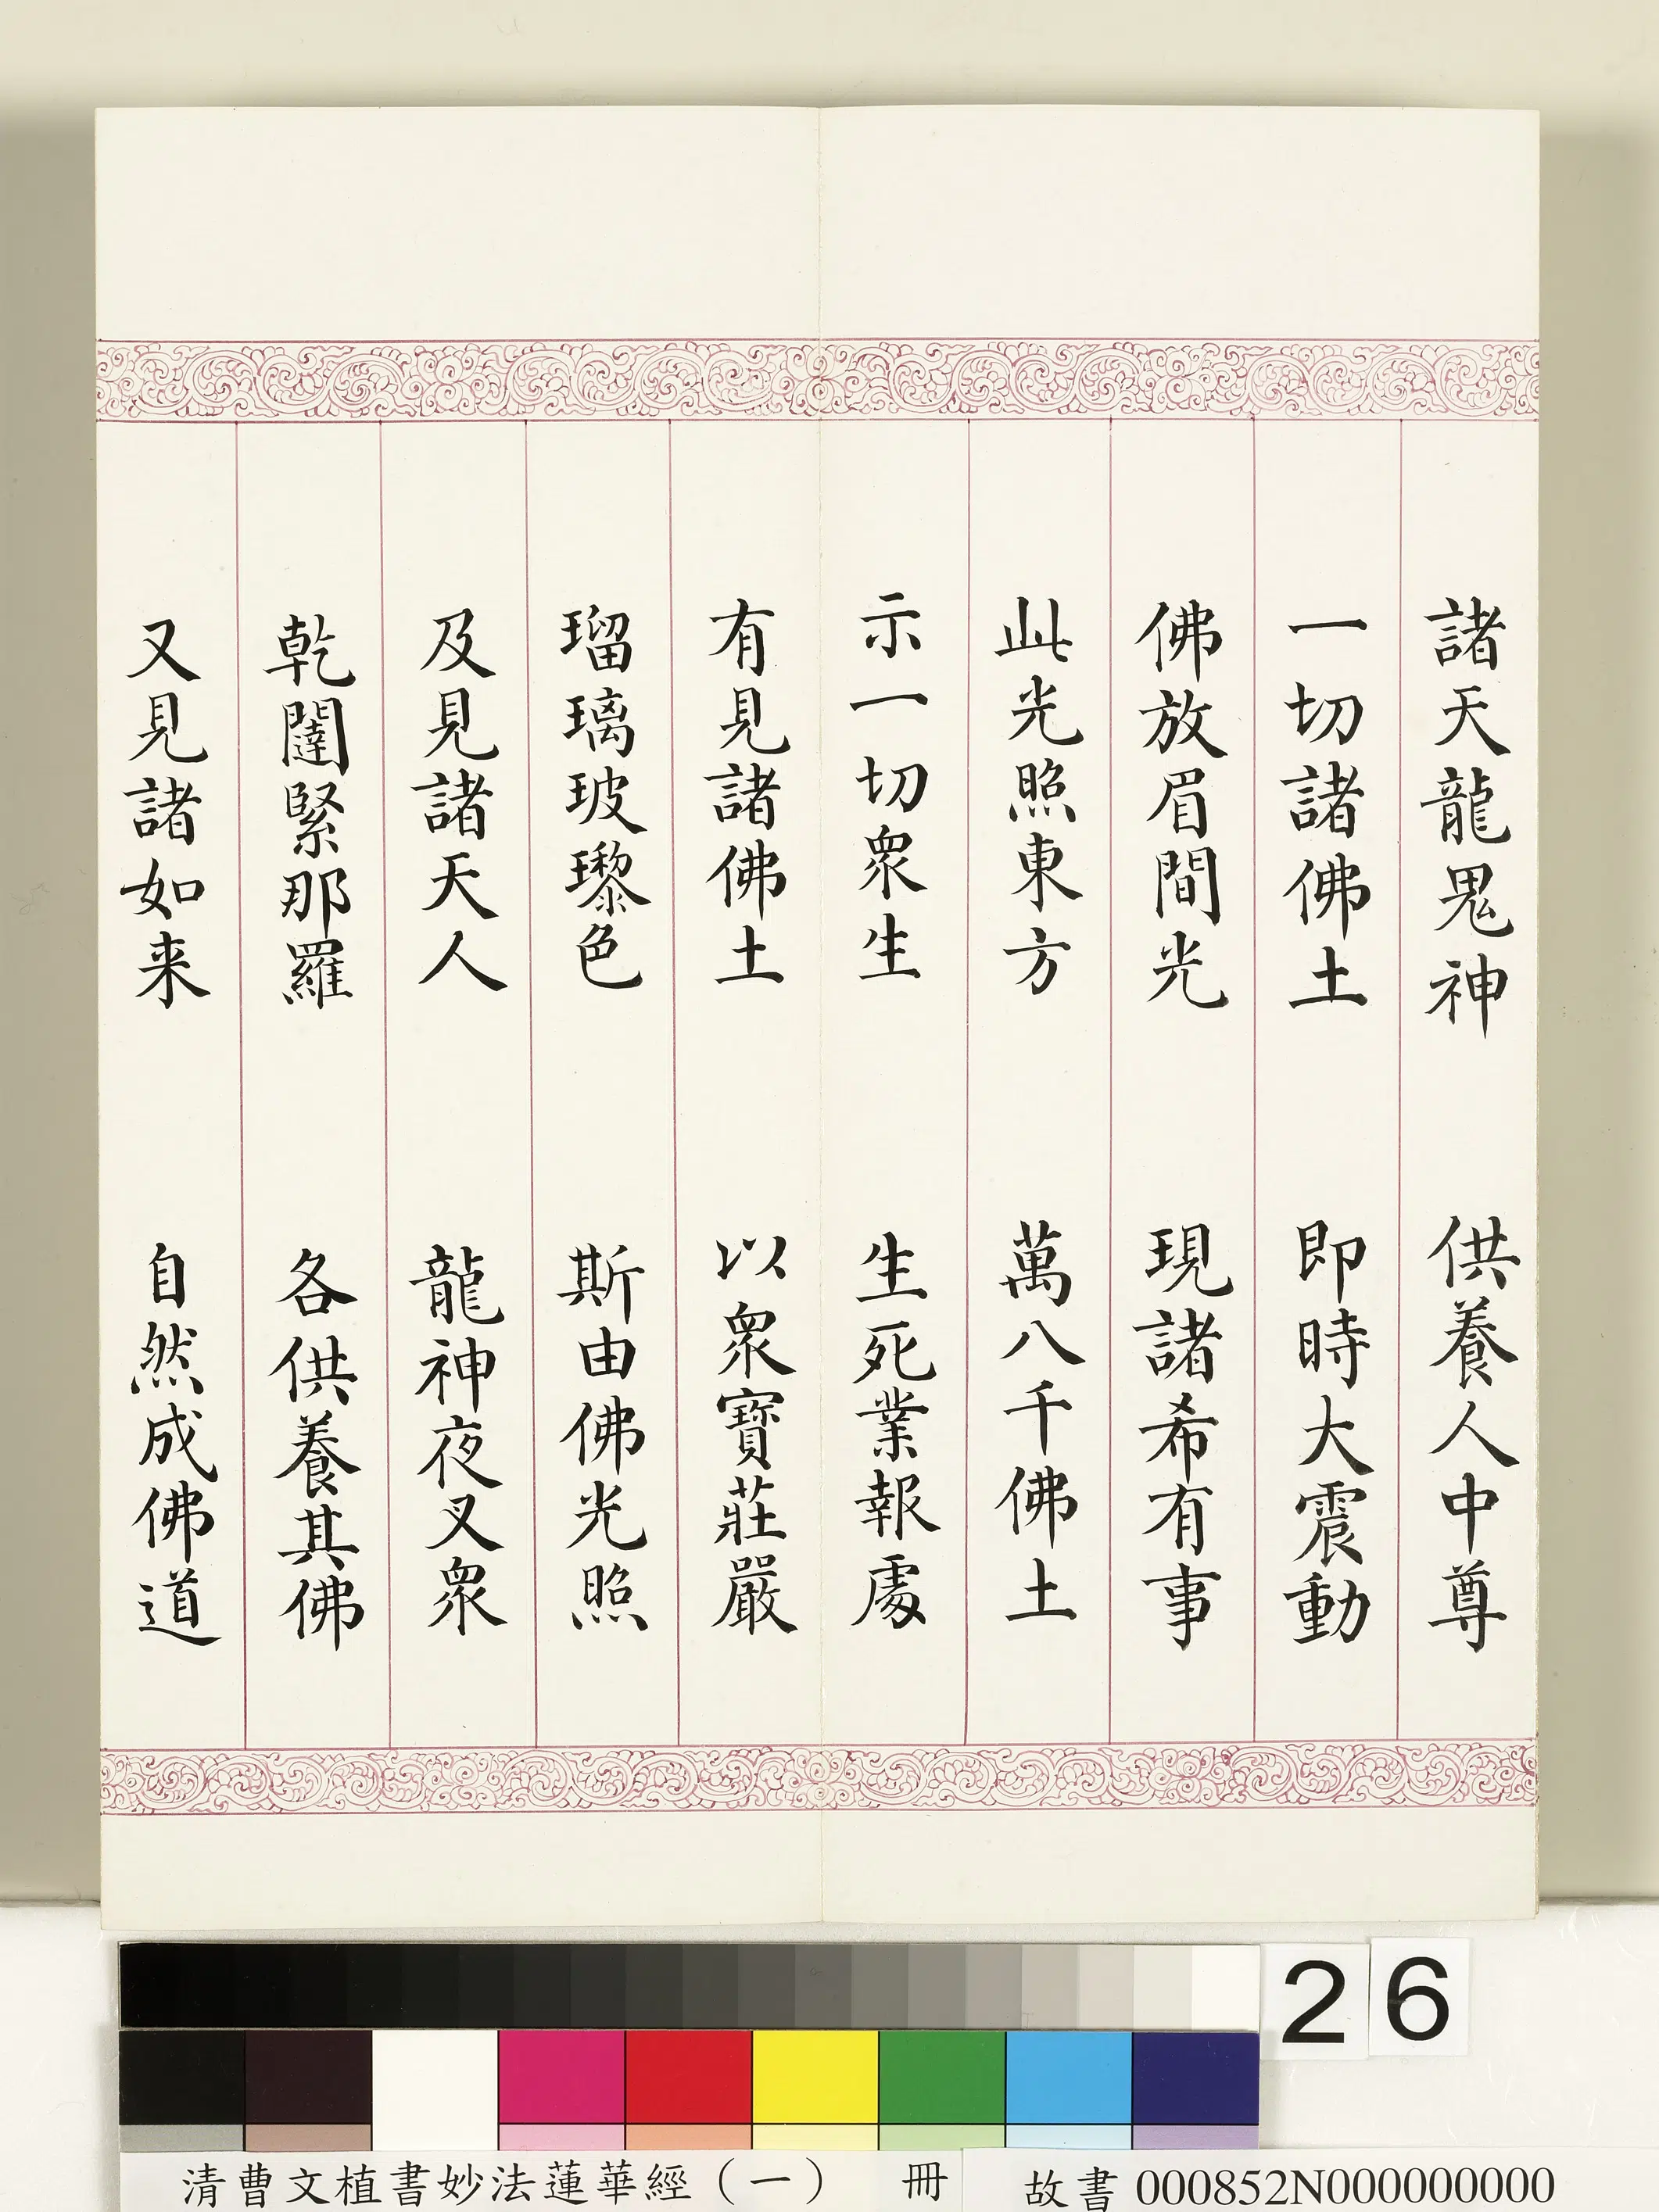 諸天龍鬼神 供養人中尊
一切諸佛土 即時大震動
佛放眉間光 現諸希有事
此光照東方 萬八千佛土
示一切衆生 生死業報處
有見諸佛土 以衆寶莊嚴
瑠璃玻瓈色 斯由佛光照
及見諸天人 龍神夜叉衆
乾闥緊那羅 各供養其佛
又見諸如来 自然成佛道
26
清曹文植書妙法蓮華經（一） 冊
故書000852N000000000